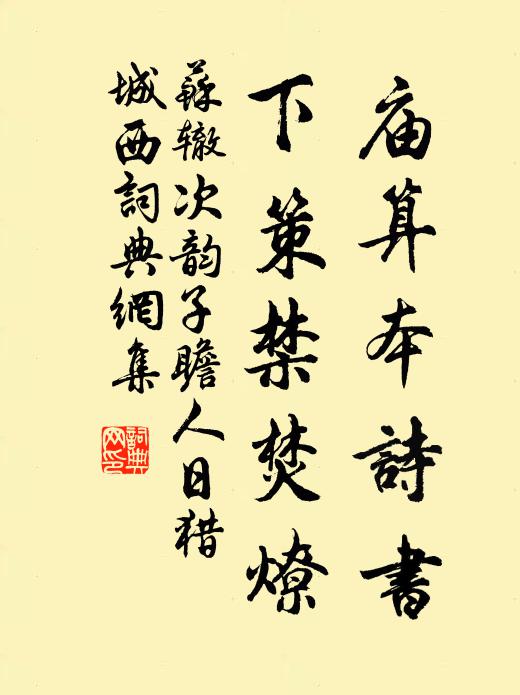 庙算本詩書
下策禁焚燎
蘇辙次韵子瞻人日猎
城西詞典網集
詞典网印